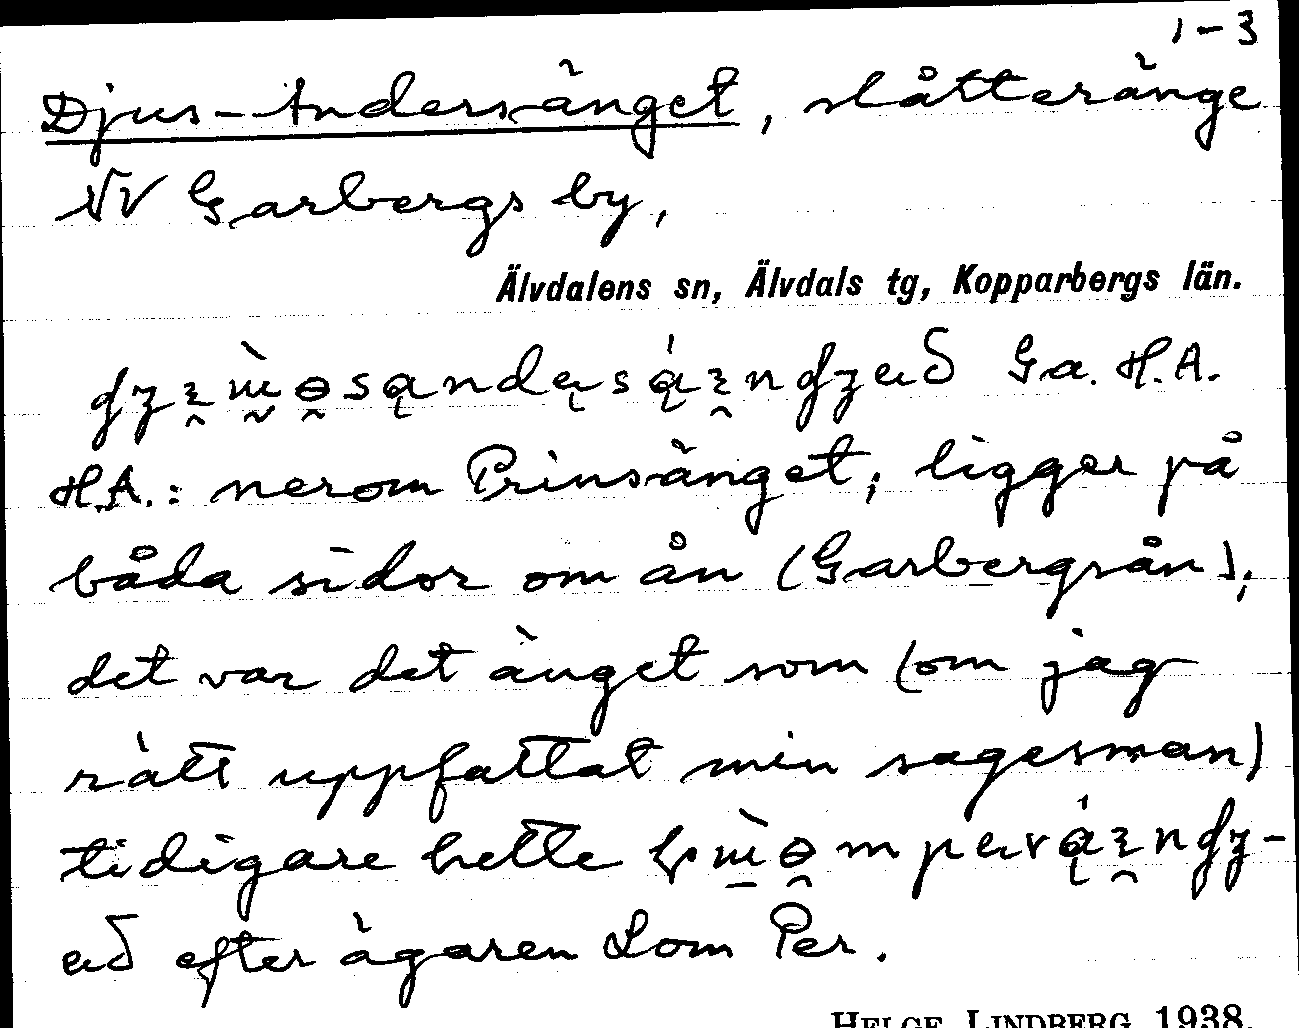 1–3
Djus-Andersänget, slåtteränge
NV Garbergs by,
Älvdalens sn, Älvdals tg, Kopparbergs län.
Ga. H.A.
H.A.: nerom Prinsänget; ligger på
båda sidor om ån (Garbergsån);
det var det änget som (om jag
rätt uppfattat min sagesman)
tidigare hette
efter ägaren Lom Per.
HELGE LINDBERG 1938.